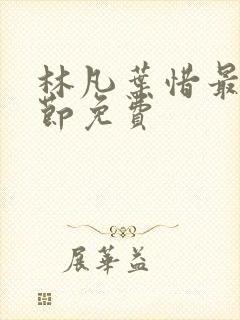 林凡葉惜最
節免費
展華益